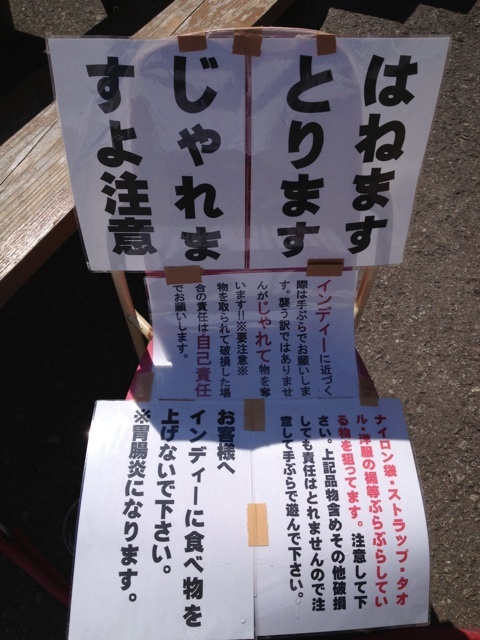 はねます
とります
じゃれま
すよ注意
インディーに近づく
際は手ぶらでお願いしま
す。襲う訳ではありませ
んがじゃれて物を奪
います!!※要注意※
物を取られて破損した場
合の責任は自己責任
でお願いします。
ナイロン袋・ストラップ・タオ
ル・洋服の縄等ぶらぶらしてい
る物を狙ってます。注意して下
さい。上記品物含めその他破損
しても責任はとれませんので注
意して手ぶらで遊んで下さい。
お客様へ
インディーに食べ物を
上げないで下さい。
※胃腸炎になります。